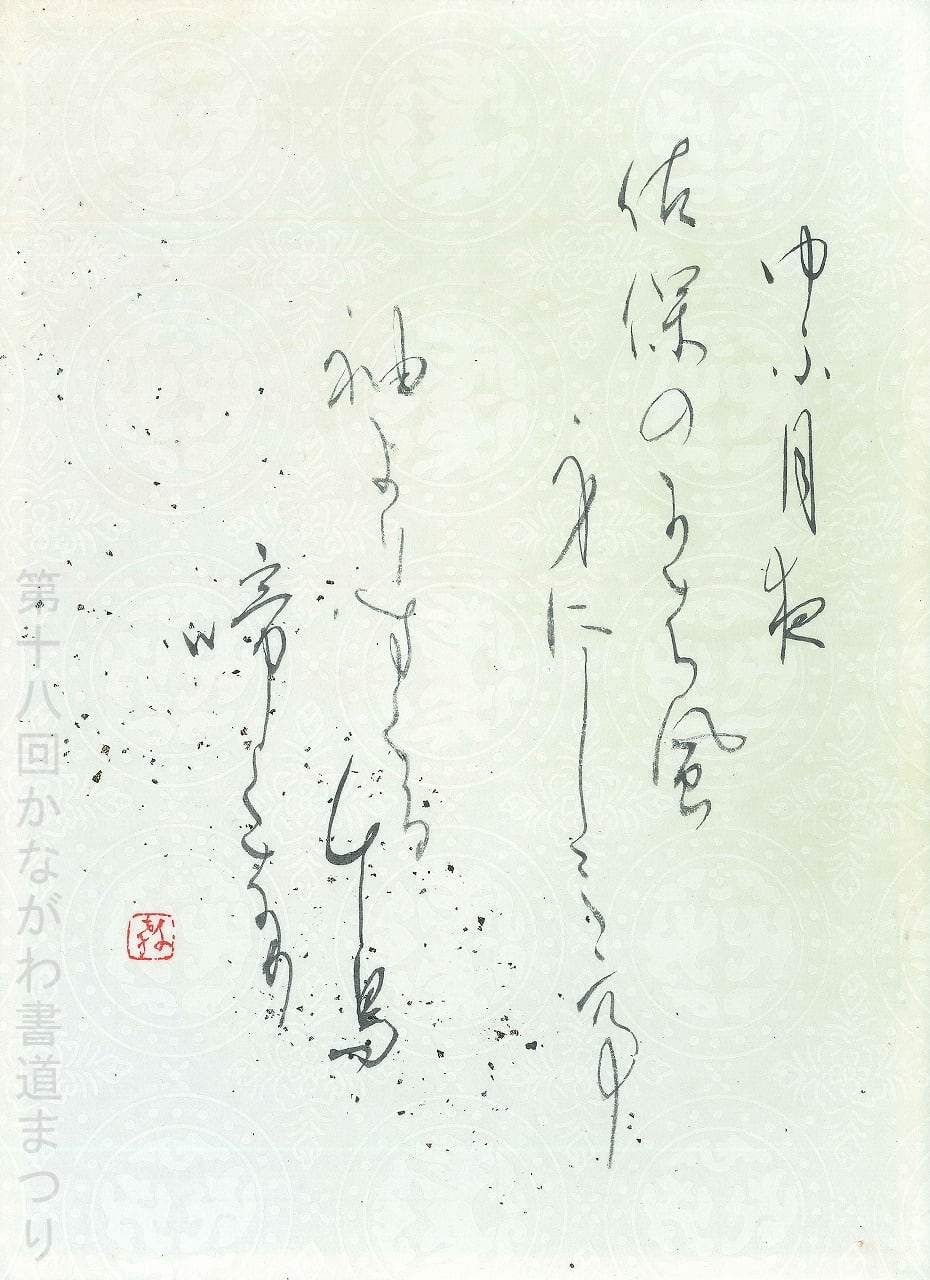 ゆふ月夜
佐保のかはら風
身にしみ
袖よりすぐる
千鳥
啼くなり
第十八回かながわ書道まつり